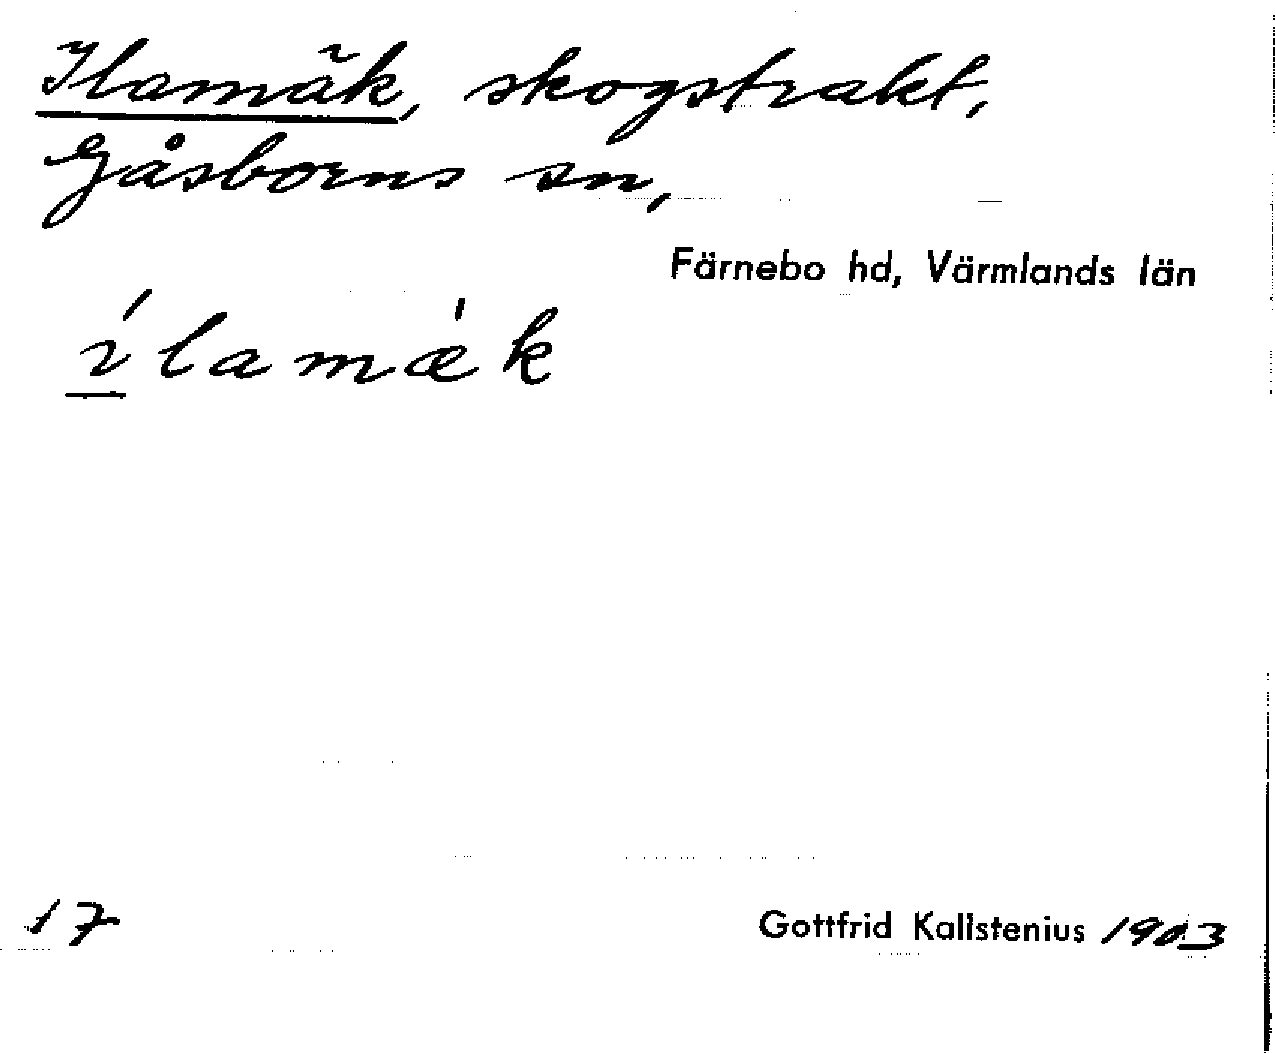 Ilamäk, skogstrakt,
Gåsborns sn,
Färnebo hd, Värmlands län
í̲lamæ̍k
17
Gottfrid Kallstenius 1903